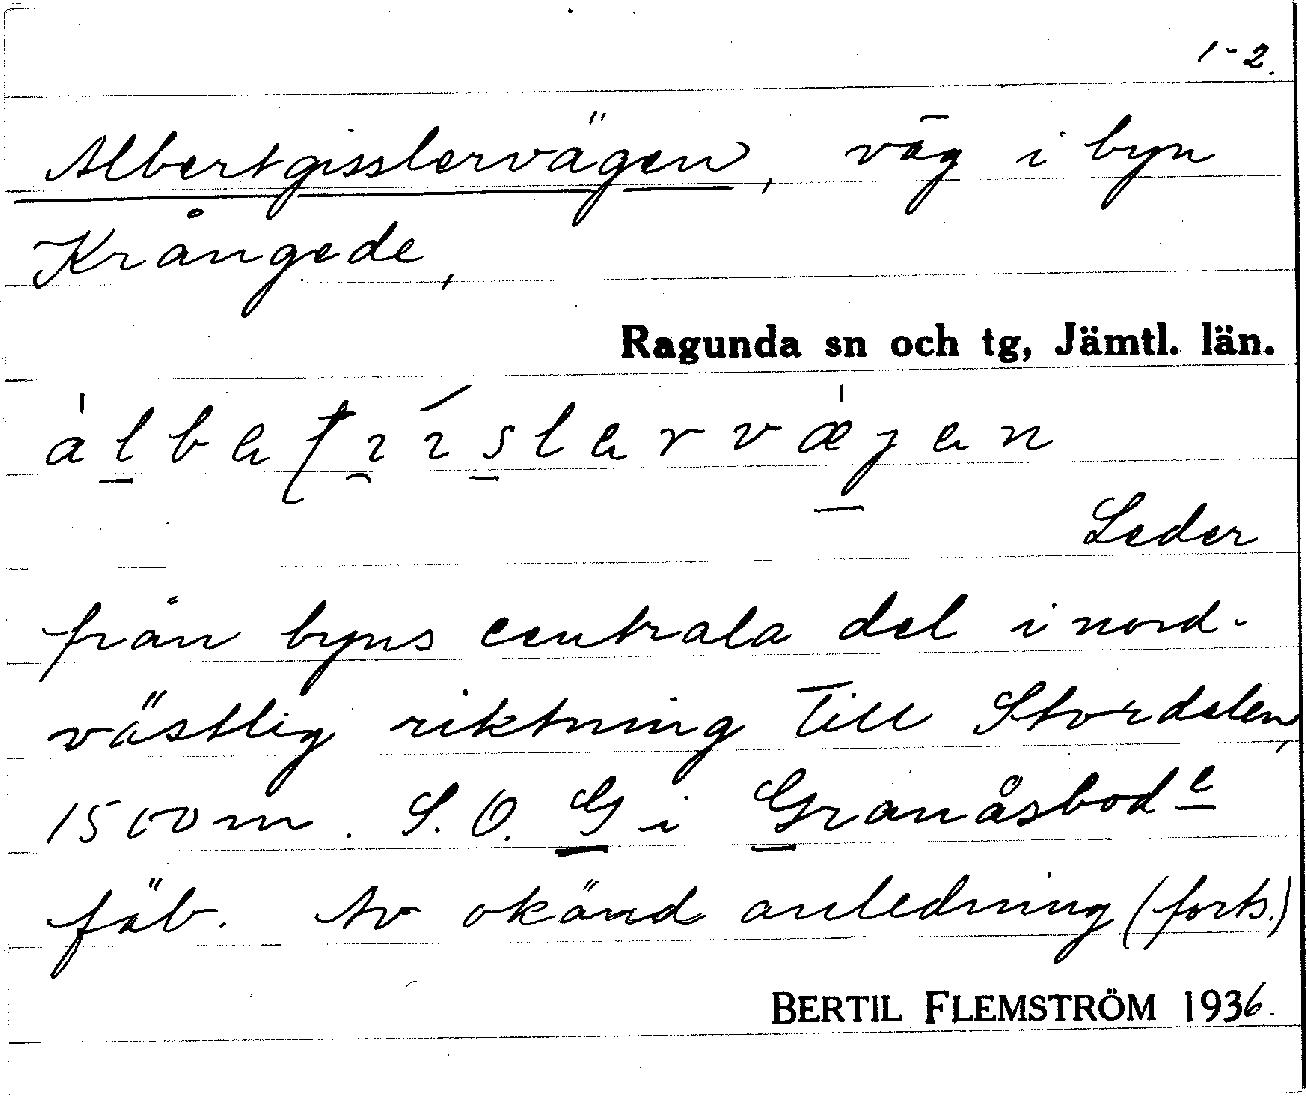 1-2.
Albertgisslervägen, väg i byn
Krångede,
Ragunda sn och tg, Jämtl. län.
Leder
från byns centrala del i nord-
västlig riktning till Stordalen,
1500 m. S.O. G i Granåsbode
fäb. Av okänd anledning (forts.)
BERTIL FLEMSTRÖM 1936.